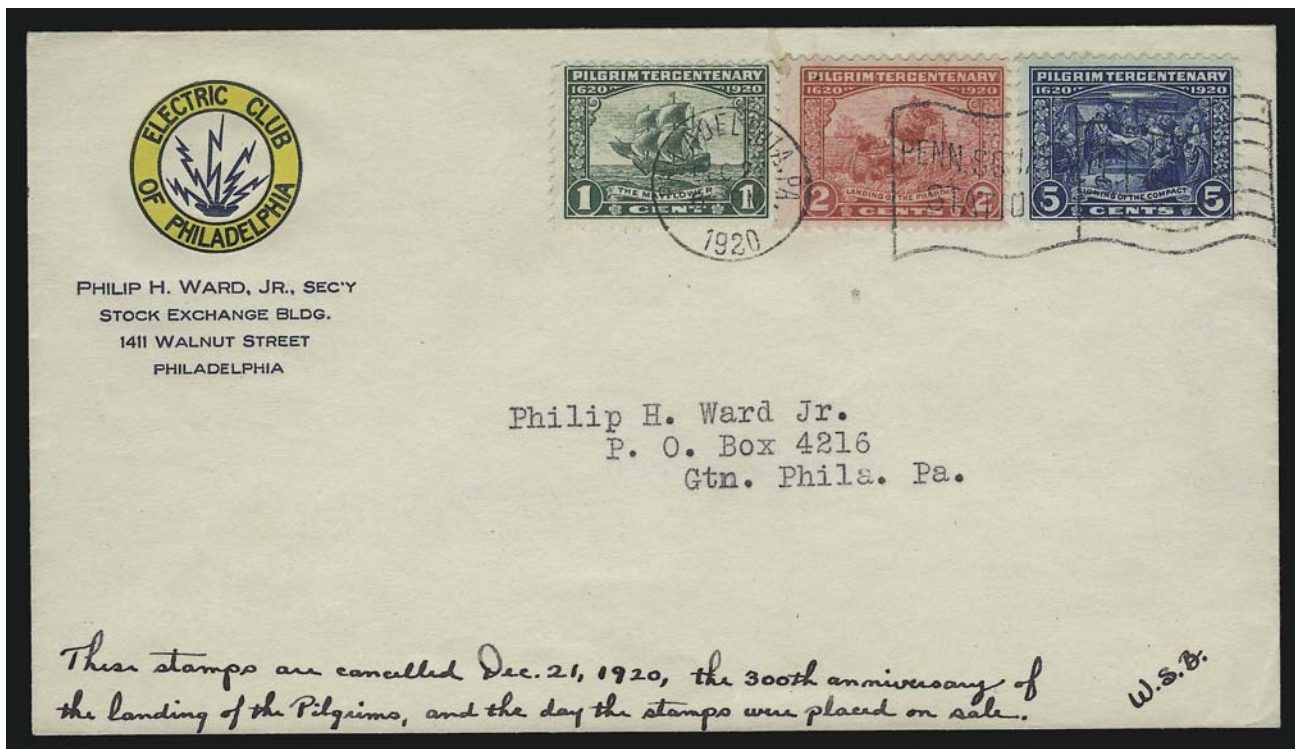 ELECTRIC CLUB
OF PHILADELPHIA
PHILIP H. WARD, JR., SEC'Y
STOCK EXCHANGE BLDG.
1411 WALNUT STREET
PHILADELPHIA
PILGRIM TERCENTENARY
1620 1920
THE MAYFLOWER
1 CENT 1
PILGRIM TERCENTENARY
1620 1920
LANDING OF THE
2 CENTS 2
PILGRIM TERCENTENARY
1620 1920
SIGNING OF THE COMPACT
5 CENTS 5
PA.
1920
PENN.
Philip H. Ward Jr.
P. O. Box 4216
Gtn. Phila. Pa.
These stamps are cancelled Dec. 21, 1920, the 300th anniversary of
the landing of the Pilgrims, and the day the stamps were placed on sale.
W.S.B.